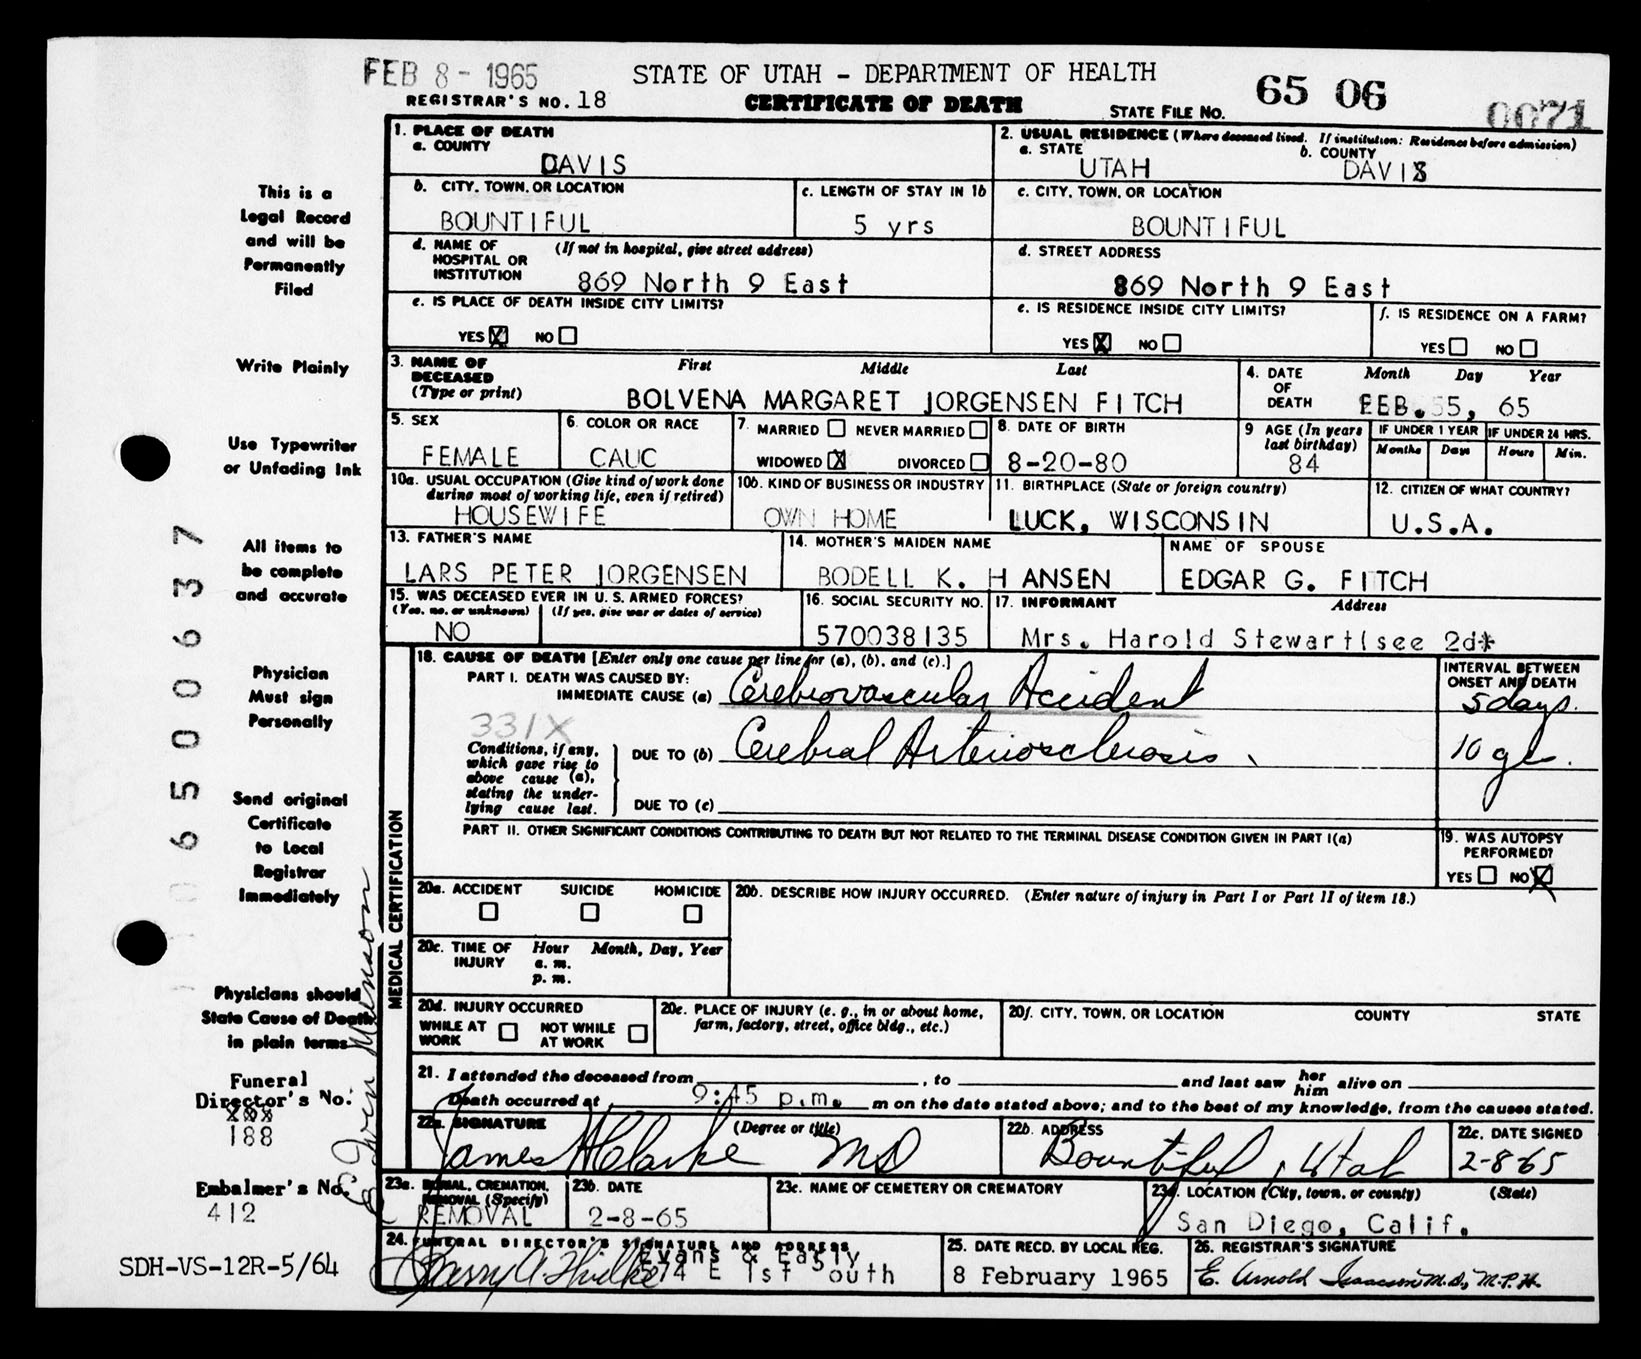 FEB 8 - 1965
STATE OF UTAH - DEPARTMENT OF HEALTH
65 06
0071
REGISTRAR'S NO. 18
CERTIFICATE OF DEATH
STATE FILE NO.
1. PLACE OF DEATH
a. COUNTY
DAVIS
2. USUAL RESIDENCE (Where deceased lived. If institution: Residence before admission)
a. STATE
UTAH
b. COUNTY
DAVIS
b. CITY, TOWN, OR LOCATION
BOUNTIFUL
c. LENGTH OF STAY IN 1b
5 yrs
c. CITY, TOWN, OR LOCATION
BOUNTIFUL
d. NAME OF HOSPITAL OR INSTITUTION
(If not in hospital, give street address)
869 North 9 East
d. STREET ADDRESS
869 North 9 East
e. IS PLACE OF DEATH INSIDE CITY LIMITS?
YES X NO
e. IS RESIDENCE INSIDE CITY LIMITS?
YES X NO
f. IS RESIDENCE ON A FARM?
YES NO
3. NAME OF DECEASED (Type or print)
First Middle Last
BOLVENA MARGARET JORGENSEN FITCH
4. DATE OF DEATH
Month Day Year
FEB. 5, 65
5. SEX
FEMALE
6. COLOR OR RACE
CAUC
7. MARRIED NEVER MARRIED
WIDOWED X DIVORCED
8. DATE OF BIRTH
8-20-80
9 AGE (In years last birthday)
84
IF UNDER 1 YEAR
Months Days
IF UNDER 24 HRS.
Hours Min.
10a. USUAL OCCUPATION (Give kind of work done during most of working life, even if retired)
HOUSEWIFE
10b. KIND OF BUSINESS OR INDUSTRY
OWN HOME
11. BIRTHPLACE (State or foreign country)
LUCK, WISCONSIN
12. CITIZEN OF WHAT COUNTRY?
U.S.A.
13. FATHER'S NAME
LARS PETER JORGENSEN
14. MOTHER'S MAIDEN NAME
BODELL K. HANSEN
NAME OF SPOUSE
EDGAR G. FITCH
15. WAS DECEASED EVER IN U.S. ARMED FORCES?
(Yes, no, or unknown) (If yes, give war or dates of service)
NO
16. SOCIAL SECURITY NO.
570038135
17. INFORMANT Address
Mrs. Harold Stewart(see 2d*
MEDICAL CERTIFICATION
18. CAUSE OF DEATH [Enter only one cause per line for (a), (b), and (c).]
PART I. DEATH WAS CAUSED BY:
IMMEDIATE CAUSE (a) Cerebrovascular Accident
INTERVAL BETWEEN ONSET AND DEATH
5 days.
331X
Conditions, if any, which gave rise to above cause (a), stating the underlying cause last.
DUE TO (b) Cerebral Arteriosclerosis
10 yrs.
DUE TO (c)
PART II. OTHER SIGNIFICANT CONDITIONS CONTRIBUTING TO DEATH BUT NOT RELATED TO THE TERMINAL DISEASE CONDITION GIVEN IN PART I(a)
19. WAS AUTOPSY PERFORMED?
YES NO X
20a. ACCIDENT SUICIDE HOMICIDE
20b. DESCRIBE HOW INJURY OCCURRED. (Enter nature of injury in Part I or Part II of item 18.)
20c. TIME OF INJURY
Hour Month, Day, Year
a. m.
p. m.
20d. INJURY OCCURRED
WHILE AT WORK NOT WHILE AT WORK
20e. PLACE OF INJURY (e. g., in or about home, farm, factory, street, office bldg., etc.)
20f. CITY, TOWN, OR LOCATION COUNTY STATE
21. I attended the deceased from , to and last saw her him alive on
Death occurred at 9:45 p.m. m on the date stated above; and to the best of my knowledge, from the causes stated.
22a. SIGNATURE (Degree or title)
James H Clarke MD
22b. ADDRESS
Bountiful, Utah
22c. DATE SIGNED
2-8-65
23a. BURIAL, CREMATION, REMOVAL (Specify)
REMOVAL
23b. DATE
2-8-65
23c. NAME OF CEMETERY OR CREMATORY
23d. LOCATION (City, town, or county) (State)
San Diego, Calif.
24. FUNERAL DIRECTOR'S SIGNATURE AND ADDRESS
Evans & Early
574 E 1st South
25. DATE RECD. BY LOCAL REG.
8 February 1965
26. REGISTRAR'S SIGNATURE
E. Arnold Isaacson M.D., M.P.H.
This is a
Legal Record
and will be
Permanently
Filed
Write Plainly
Use Typewriter
or Unfading Ink
All items to
be complete
and accurate
Physician
Must sign
Personally
Send original
Certificate
to Local
Registrar
Immediately
Physicians should
State Cause of Death
in plain terms
Funeral
Director's No.
xxx
188
Embalmer's No.
412
SDH-VS-12R-5/64
0 6 5 0 0 6 3 7
Munson